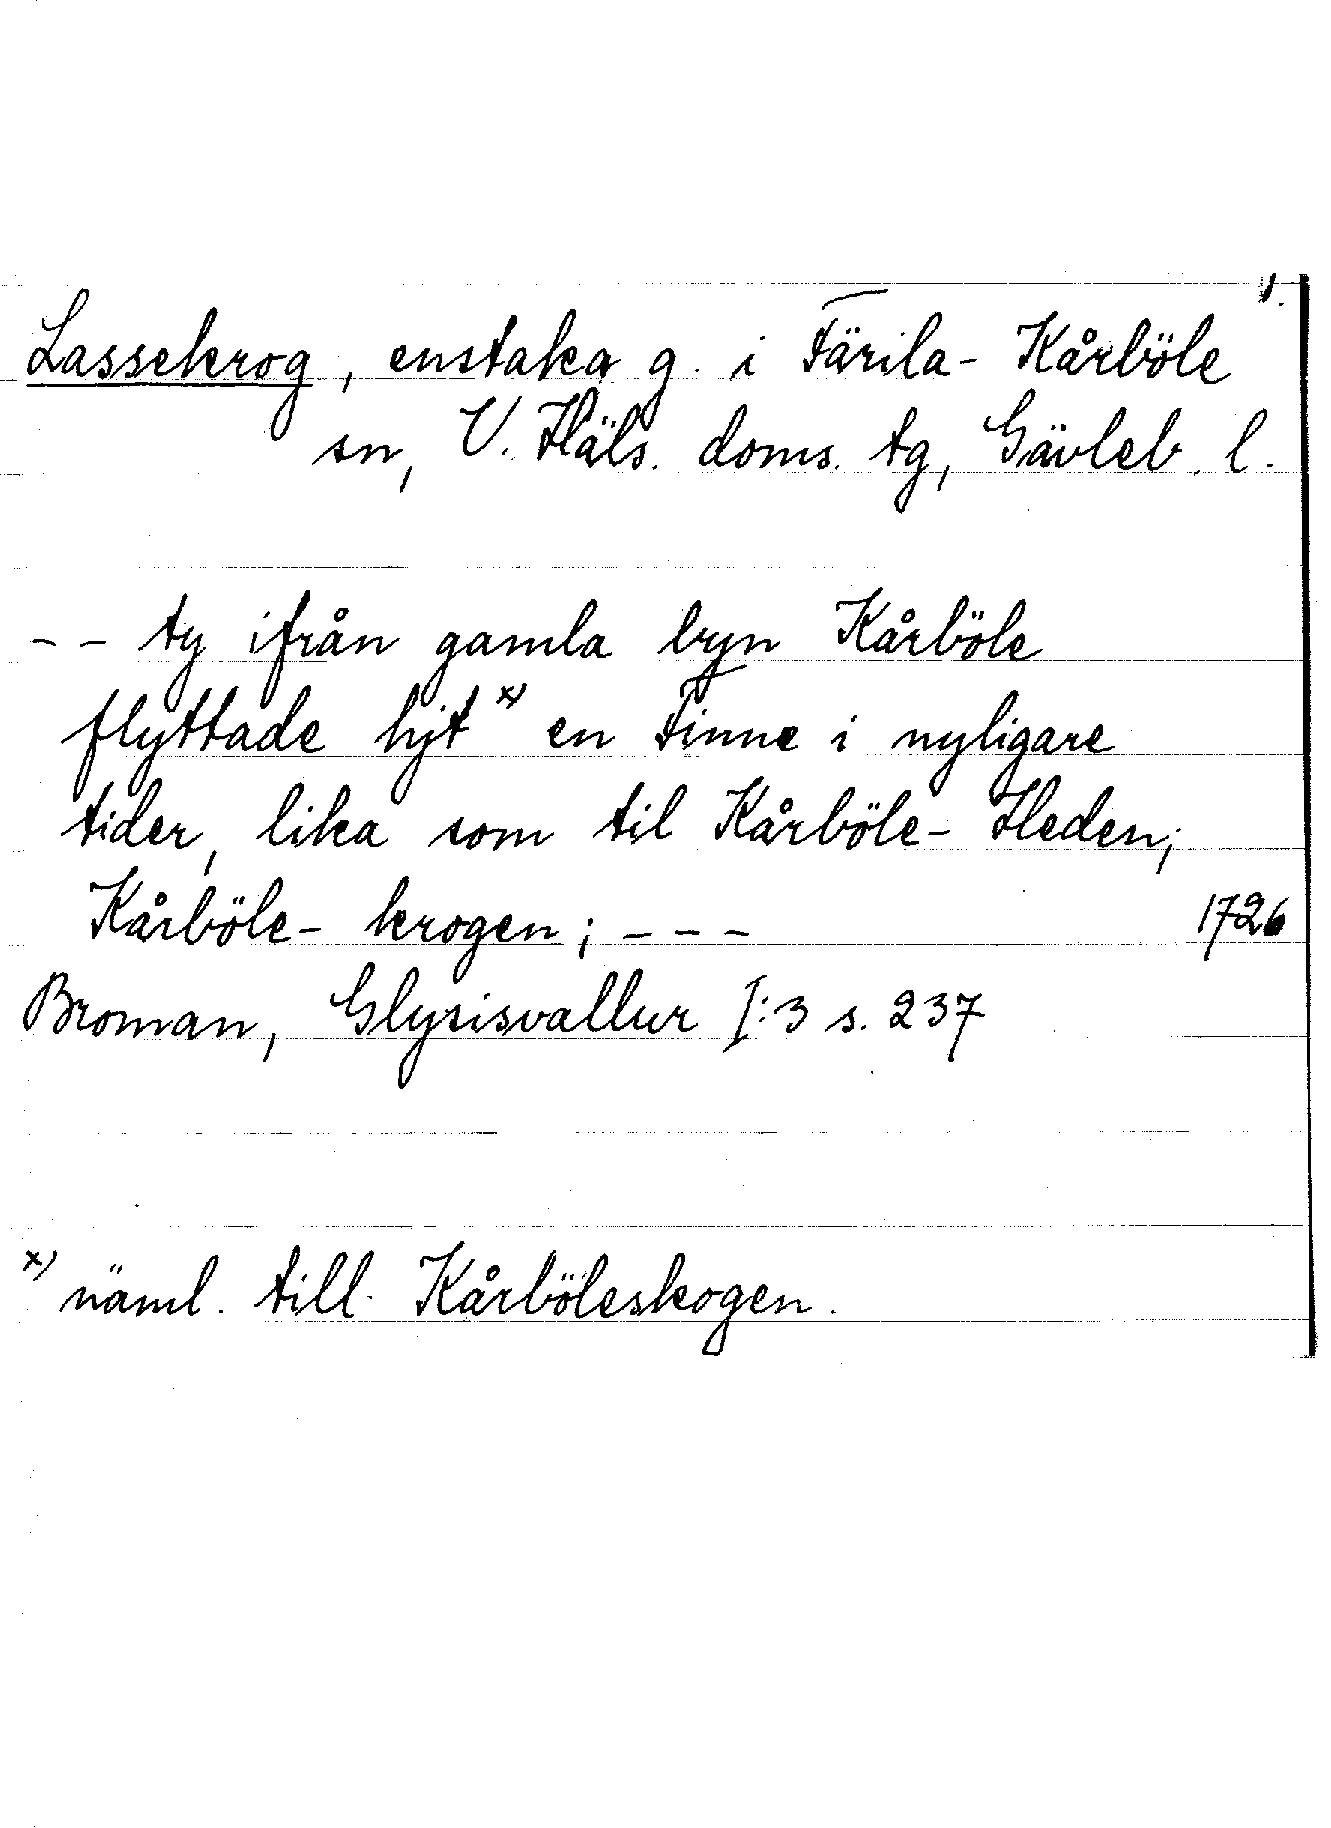 1.
Lassekrog, enstaka g. i Färila-Kårböle
sn, V. Häls. doms. tg, Gävleb. l.
-- ty ifrån gamla byn Kårböle
flyttade hijt x) en Finne i nyligare
tider, lika som til Kårböle-Heden;
Kårböle-krogen; --- 1726
Broman, Glysisvallur I:3 s. 237
x) näml. till Kårböleskogen.